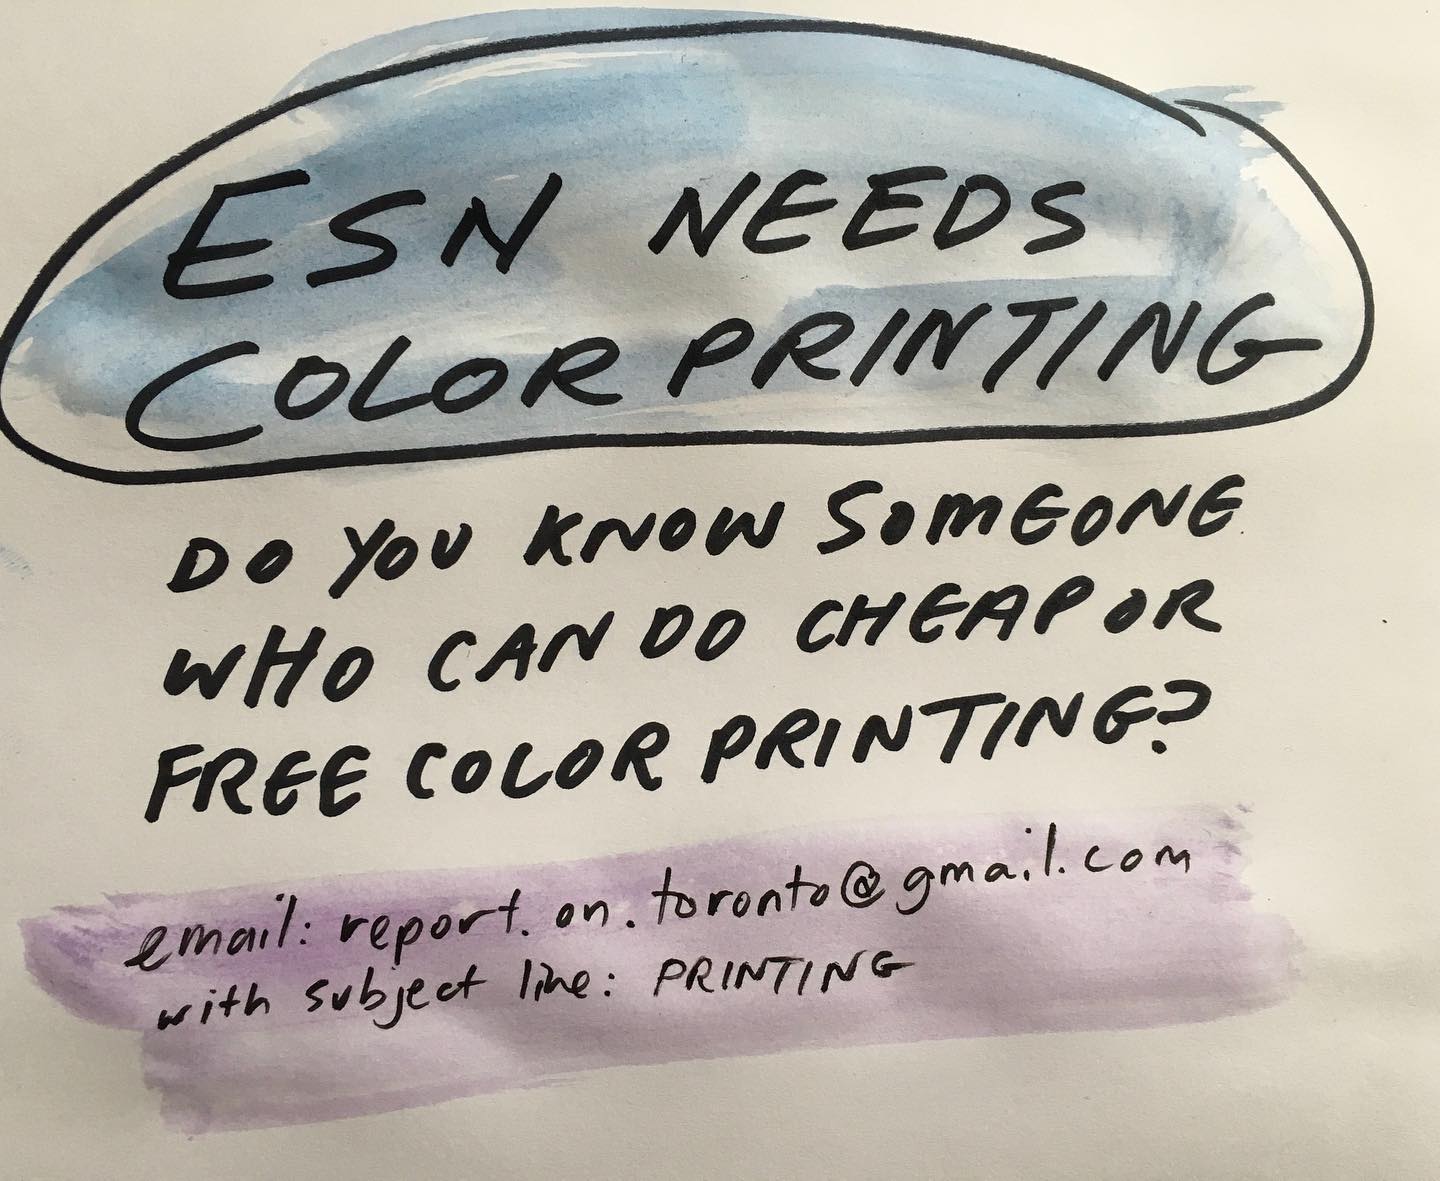 ESN NEEDS
COLOR PRINTING
DO YOU KNOW SOMEONE
WHO CAN DO CHEAP OR
FREE COLOR PRINTING?
email: report.on.toronto@gmail.com
with subject line: PRINTING